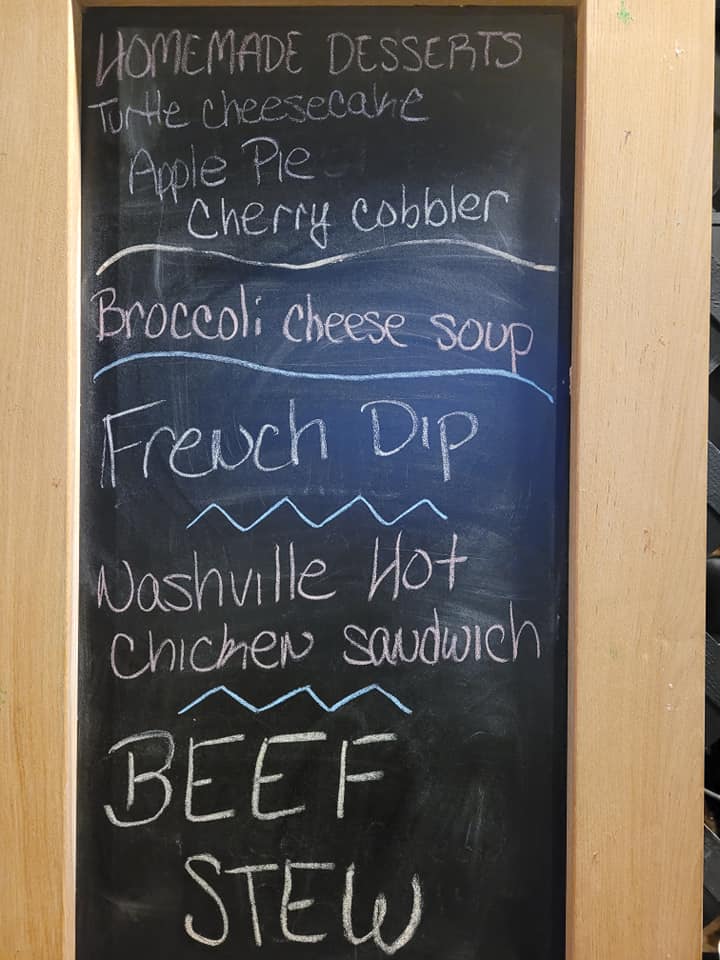 HOMEMADE DESSERTS
Turtle cheesecake
Apple Pie
Cherry cobbler
Broccoli cheese soup
French Dip
Nashville Hot
chicken sandwich
BEEF
STEW